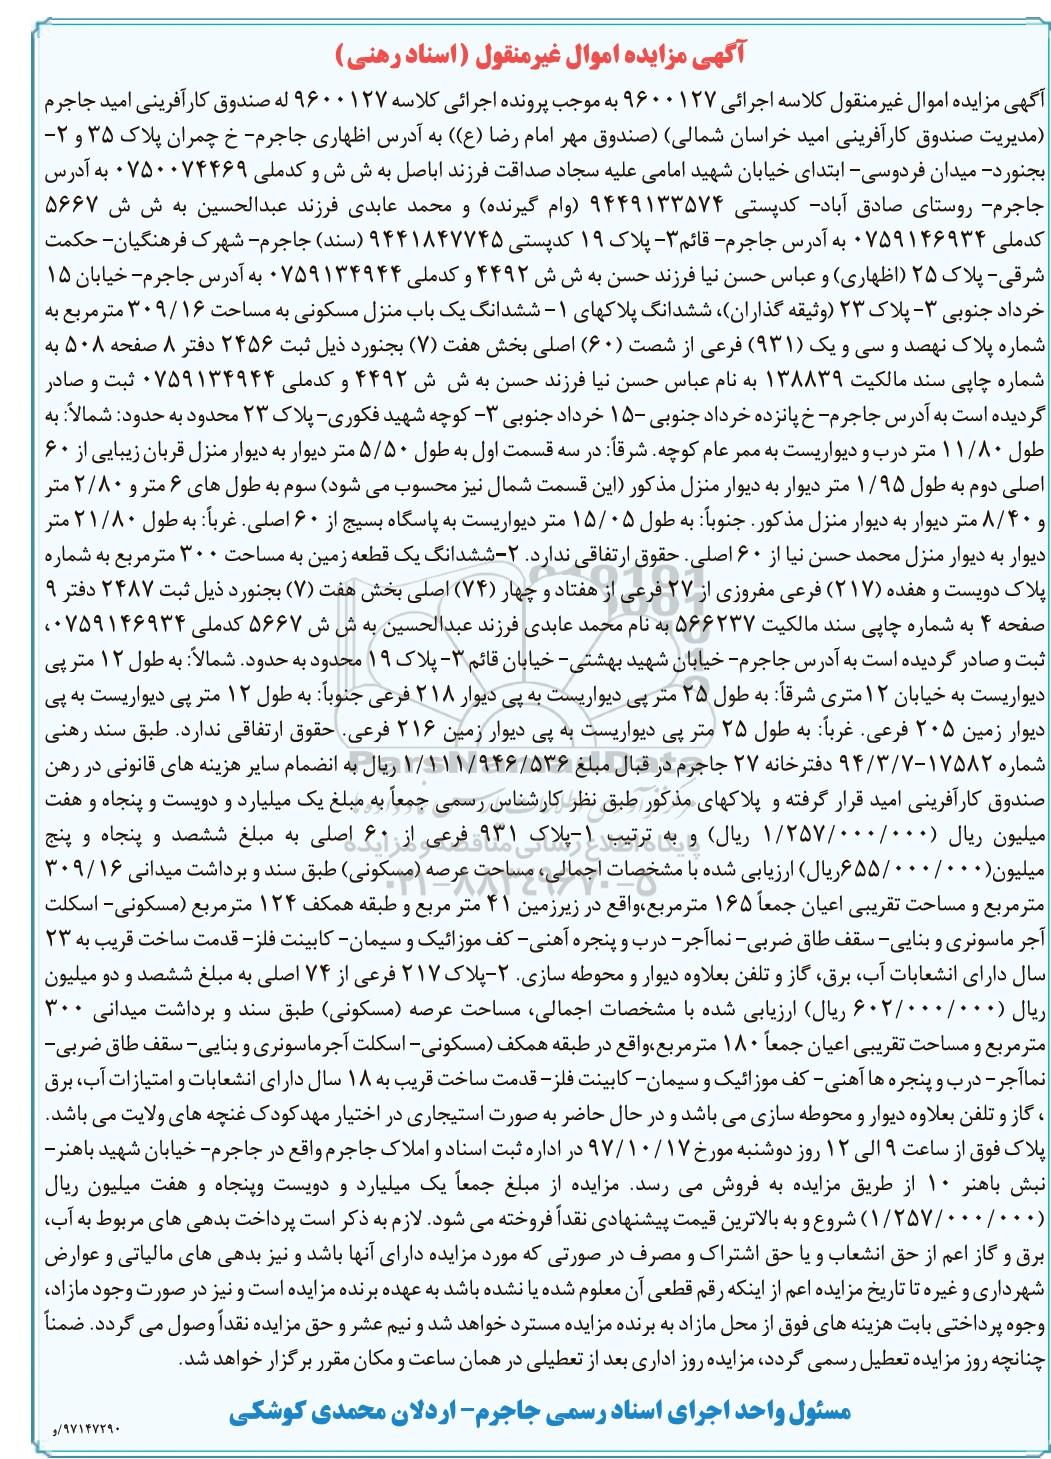 آگهی مزایده اموال غیرمنقول (اسناد رهنی)
آگهی مزایده اموال غیرمنقول کلاسه اجرائی ۹۶۰۰۱۲۷ به موجب پرونده اجرائی کلاسه ۹۶۰۰۱۲۷ له صندوق کارآفرینی امید جاجرم
(مدیریت صندوق کارآفرینی امید خراسان شمالی) (صندوق مهر امام رضا (ع)) به آدرس اظهاری جاجرم- خ چمران پلاک ۳۵ و ۲-
بجنورد- میدان فردوسی- ابتدای خیابان شهید امامی علیه سجاد صداقت فرزند اباصل به ش ش و کدملی ۰۷۵۰۰۷۴۴۶۹ به آدرس
جاجرم- روستای صادق آباد- کدپستی ۹۴۴۹۱۳۳۵۷۴ (وام گیرنده) و محمد عابدی فرزند عبدالحسین به ش ش ۵۶۶۷
کدملی ۰۷۵۹۱۴۶۹۳۴ به آدرس جاجرم- قائم۳- پلاک ۱۹ کدپستی ۹۴۴۱۸۴۷۷۴۵ (سند) جاجرم- شهرک فرهنگیان- حکمت
شرقی- پلاک ۲۵ (اظهاری) و عباس حسن نیا فرزند حسن به ش ش ۴۴۹۲ و کدملی ۰۷۵۹۱۳۴۹۴۴ به آدرس جاجرم- خیابان ۱۵
خرداد جنوبی ۳- پلاک ۲۳ (وثیقه گذاران)، ششدانگ پلاکهای ۱- ششدانگ یک باب منزل مسکونی به مساحت ۳۰۹/۱۶ مترمربع به
شماره پلاک نهصد و سی و یک (۹۳۱) فرعی از شصت (۶۰) اصلی بخش هفت (۷) بجنورد ذیل ثبت ۲۴۵۶ دفتر ۸ صفحه ۵۰۸ به
شماره چاپی سند مالکیت ۱۳۸۸۳۹ به نام عباس حسن نیا فرزند حسن به ش ش ۴۴۹۲ و کدملی ۰۷۵۹۱۳۴۹۴۴ ثبت و صادر
گردیده است به آدرس جاجرم- خ پانزده خرداد جنوبی -۱۵ خرداد جنوبی ۳- کوچه شهید فکوری- پلاک ۲۳ محدود به حدود: شمالاً: به
طول ۱۱/۸۰ متر درب و دیواریست به ممر عام کوچه. شرقاً: در سه قسمت اول به طول ۵/۵۰ متر دیوار به دیوار منزل قربان زیبایی از ۶۰
اصلی دوم به طول ۱/۹۵ متر دیوار به دیوار منزل مذکور (این قسمت شمال نیز محسوب می شود) سوم به طول های ۶ متر و ۲/۸۰ متر
و ۸/۴۰ متر دیوار به دیوار منزل مذکور. جنوباً: به طول ۱۵/۰۵ متر دیواریست به پاسگاه بسیج از ۶۰ اصلی. غرباً: به طول ۲۱/۸۰ متر
دیوار به دیوار منزل محمد حسن نیا از ۶۰ اصلی. حقوق ارتفاقی ندارد. ۲-ششدانگ یک قطعه زمین به مساحت ۳۰۰ مترمربع به شماره
پلاک دویست و هفده (۲۱۷) فرعی مفروزی از ۲۷ فرعی از هفتاد و چهار (۷۴) اصلی بخش هفت (۷) بجنورد ذیل ثبت ۲۴۸۷ دفتر ۹
صفحه ۴ به شماره چاپی سند مالکیت ۵۶۶۲۳۷ به نام محمد عابدی فرزند عبدالحسین به ش ش ۵۶۶۷ کدملی ۰۷۵۹۱۴۶۹۳۴،
ثبت و صادر گردیده است به آدرس جاجرم- خیابان شهید بهشتی- خیابان قائم ۳- پلاک ۱۹ محدود به حدود. شمالاً: به طول ۱۲ متر پی
دیواریست به خیابان ۱۲متری شرقاً: به طول ۲۵ متر پی دیواریست به پی دیوار ۲۱۸ فرعی جنوباً: به طول ۱۲ متر پی دیواریست به پی
دیوار زمین ۲۰۵ فرعی. غرباً: به طول ۲۵ متر پی دیواریست به پی دیوار زمین ۲۱۶ فرعی. حقوق ارتفاقی ندارد. طبق سند رهنی
شماره ۱۷۵۸۲-۹۴/۳/۷ دفترخانه ۲۷ جاجرم در قبال مبلغ ۱/۱۱۱/۹۴۶/۵۳۶ ریال به انضمام سایر هزینه های قانونی در رهن
صندوق کارآفرینی امید قرار گرفته و پلاکهای مذکور طبق نظر کارشناس رسمی جمعاً به مبلغ یک میلیارد و دویست و پنجاه و هفت
میلیون ریال (۱/۲۵۷/۰۰۰/۰۰۰ ریال) و به ترتیب ۱-پلاک ۹۳۱ فرعی از ۶۰ اصلی به مبلغ ششصد و پنجاه و پنج
میلیون(۶۵۵/۰۰۰/۰۰۰ریال) ارزیابی شده با مشخصات اجمالی، مساحت عرصه (مسکونی) طبق سند و برداشت میدانی ۳۰۹/۱۶
مترمربع و مساحت تقریبی اعیان جمعاً ۱۶۵ مترمربع،واقع در زیرزمین ۴۱ متر مربع و طبقه همکف ۱۲۴ مترمربع (مسکونی- اسکلت
آجر ماسونری و بنایی- سقف طاق ضربی- نماآجر- درب و پنجره آهنی- کف موزائیک و سیمان- کابینت فلز- قدمت ساخت قریب به ۲۳
سال دارای انشعابات آب، برق، گاز و تلفن بعلاوه دیوار و محوطه سازی. ۲-پلاک ۲۱۷ فرعی از ۷۴ اصلی به مبلغ ششصد و دو میلیون
ریال (۶۰۲/۰۰۰/۰۰۰ ریال) ارزیابی شده با مشخصات اجمالی، مساحت عرصه (مسکونی) طبق سند و برداشت میدانی ۳۰۰
مترمربع و مساحت تقریبی اعیان جمعاً ۱۸۰ مترمربع،واقع در طبقه همکف (مسکونی- اسکلت آجرماسونری و بنایی- سقف طاق ضربی-
نماآجر- درب و پنجره ها آهنی- کف موزائیک و سیمان- کابینت فلز- قدمت ساخت قریب به ۱۸ سال دارای انشعابات و امتیازات آب، برق
، گاز و تلفن بعلاوه دیوار و محوطه سازی می باشد و در حال حاضر به صورت استیجاری در اختیار مهدکودک غنچه های ولایت می باشد.
پلاک فوق از ساعت ۹ الی ۱۲ روز دوشنبه مورخ ۹۷/۱۰/۱۷ در اداره ثبت اسناد و املاک جاجرم واقع در جاجرم- خیابان شهید باهنر-
نبش باهنر ۱۰ از طریق مزایده به فروش می رسد. مزایده از مبلغ جمعاً یک میلیارد و دویست وپنجاه و هفت میلیون ریال
(۱/۲۵۷/۰۰۰/۰۰۰) شروع و به بالاترین قیمت پیشنهادی نقداً فروخته می شود. لازم به ذکر است پرداخت بدهی های مربوط به آب،
برق و گاز اعم از حق انشعاب و یا حق اشتراک و مصرف در صورتی که مورد مزایده دارای آنها باشد و نیز بدهی های مالیاتی و عوارض
شهرداری و غیره تا تاریخ مزایده اعم از اینکه رقم قطعی آن معلوم شده یا نشده باشد به عهده برنده مزایده است و نیز در صورت وجود مازاد،
وجوه پرداختی بابت هزینه های فوق از محل مازاد به برنده مزایده مسترد خواهد شد و نیم عشر و حق مزایده نقداً وصول می گردد. ضمناً
چنانچه روز مزایده تعطیل رسمی گردد، مزایده روز اداری بعد از تعطیلی در همان ساعت و مکان مقرر برگزار خواهد شد.
مسئول واحد اجرای اسناد رسمی جاجرم- اردلان محمدی کوشکی
۹۷۱۴۷۲۹۰/و
ParsNamadData
پایگاه اطلاع رسانی مناقصه و مزایده
۰۲۱-۸۸۳۴۹۶۷۰-۵